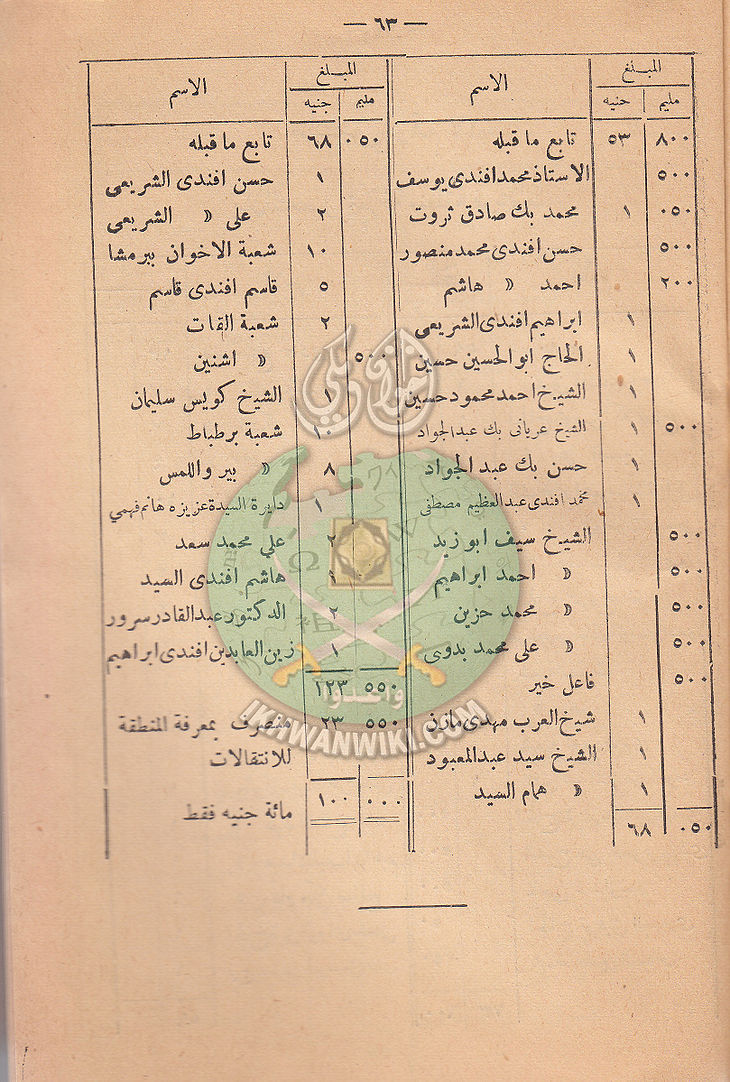 — ٦٣ —
المبلغ الاسم
مليم جنيه
٨٠٠ ٥٣ تابع ما قبله
٥٠٠ الاستاذ محمد افندى يوسف
٠٥٠ ١ محمد بك صادق ثروت
٥٠٠ حسن افندى محمد منصور
٢٠٠ احمد » هاشم
١ ابراهيم افندى الشريعى
١ الحاج ابو الحسين حسين
١ الشيخ احمد محمود حسين
٥٠٠ ١ الشيخ عريانى بك عبد الجواد
١ حسن بك عبد الجواد
١ محمد افندى عبد العظيم مصطفى
٥٠٠ الشيخ سيف ابو زيد
٥٠٠ » احمد ابراهيم
٥٠٠ » محمد حزين
٥٠٠ » على محمد بدوى
٥٠٠ فاعل خير
١ شيخ العرب مهدى مازن
١ الشيخ سيد عبد المعبود
١ » همام السيد
٠٥٠ ٦٨
المبلغ الاسم
مليم جنيه
٠٥٠ ٦٨ تابع ما قبله
١ حسن افندى الشريعى
٢ على » الشريعى
١٠ شعبة الاخوان ببرمشا
٥ قاسم افندى قاسم
٢ شعبة القات
٥٠٠ » اشنين
١ الشيخ كويس سليمان
١٠ شعبة برطباط
٨ » بير واللمس
١ دايرة السيدة عزيزه هانم فهمي
٢ على محمد سعد
١ هاشم افندى السيد
٢ الدكتور عبد القادر سرور
١ زين العابدين افندى ابراهيم
٥٥٠ ١٢٣
٥٥٠ ٢٣ منصرف بمعرفة المنطقة
للانتقالات
٠٠٠ ١٠٠ مائة جنيه فقط
إخوان ويكي
وأعدوا
IKHWANWIKI.COM